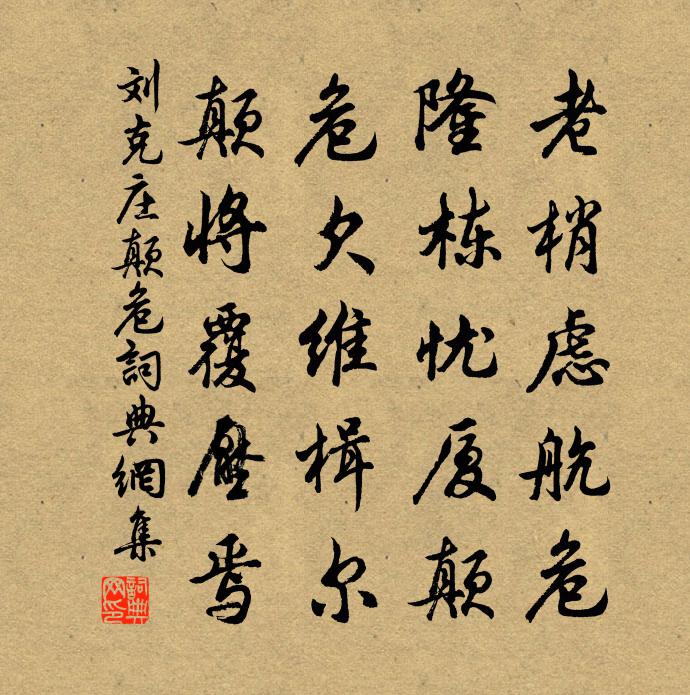 老梢虑航危
隆栋忧厦颠
危欠维楫尔
颠将覆压焉
刘克庄颠危詞典網集
詞典网印